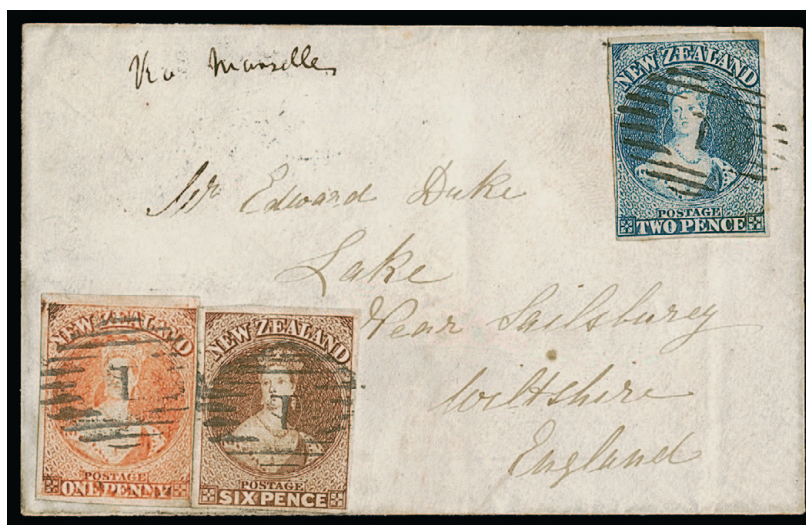 Via Marseilles
NEW ZEALAND
POSTAGE
TWO PENCE
Mr Edward Duke
Lake
Near Sailsburey
Wiltshire
England
NEW ZEALAND
1
POSTAGE
ONE PENNY
NEW ZEALAND
1
POSTAGE
SIX PENCE